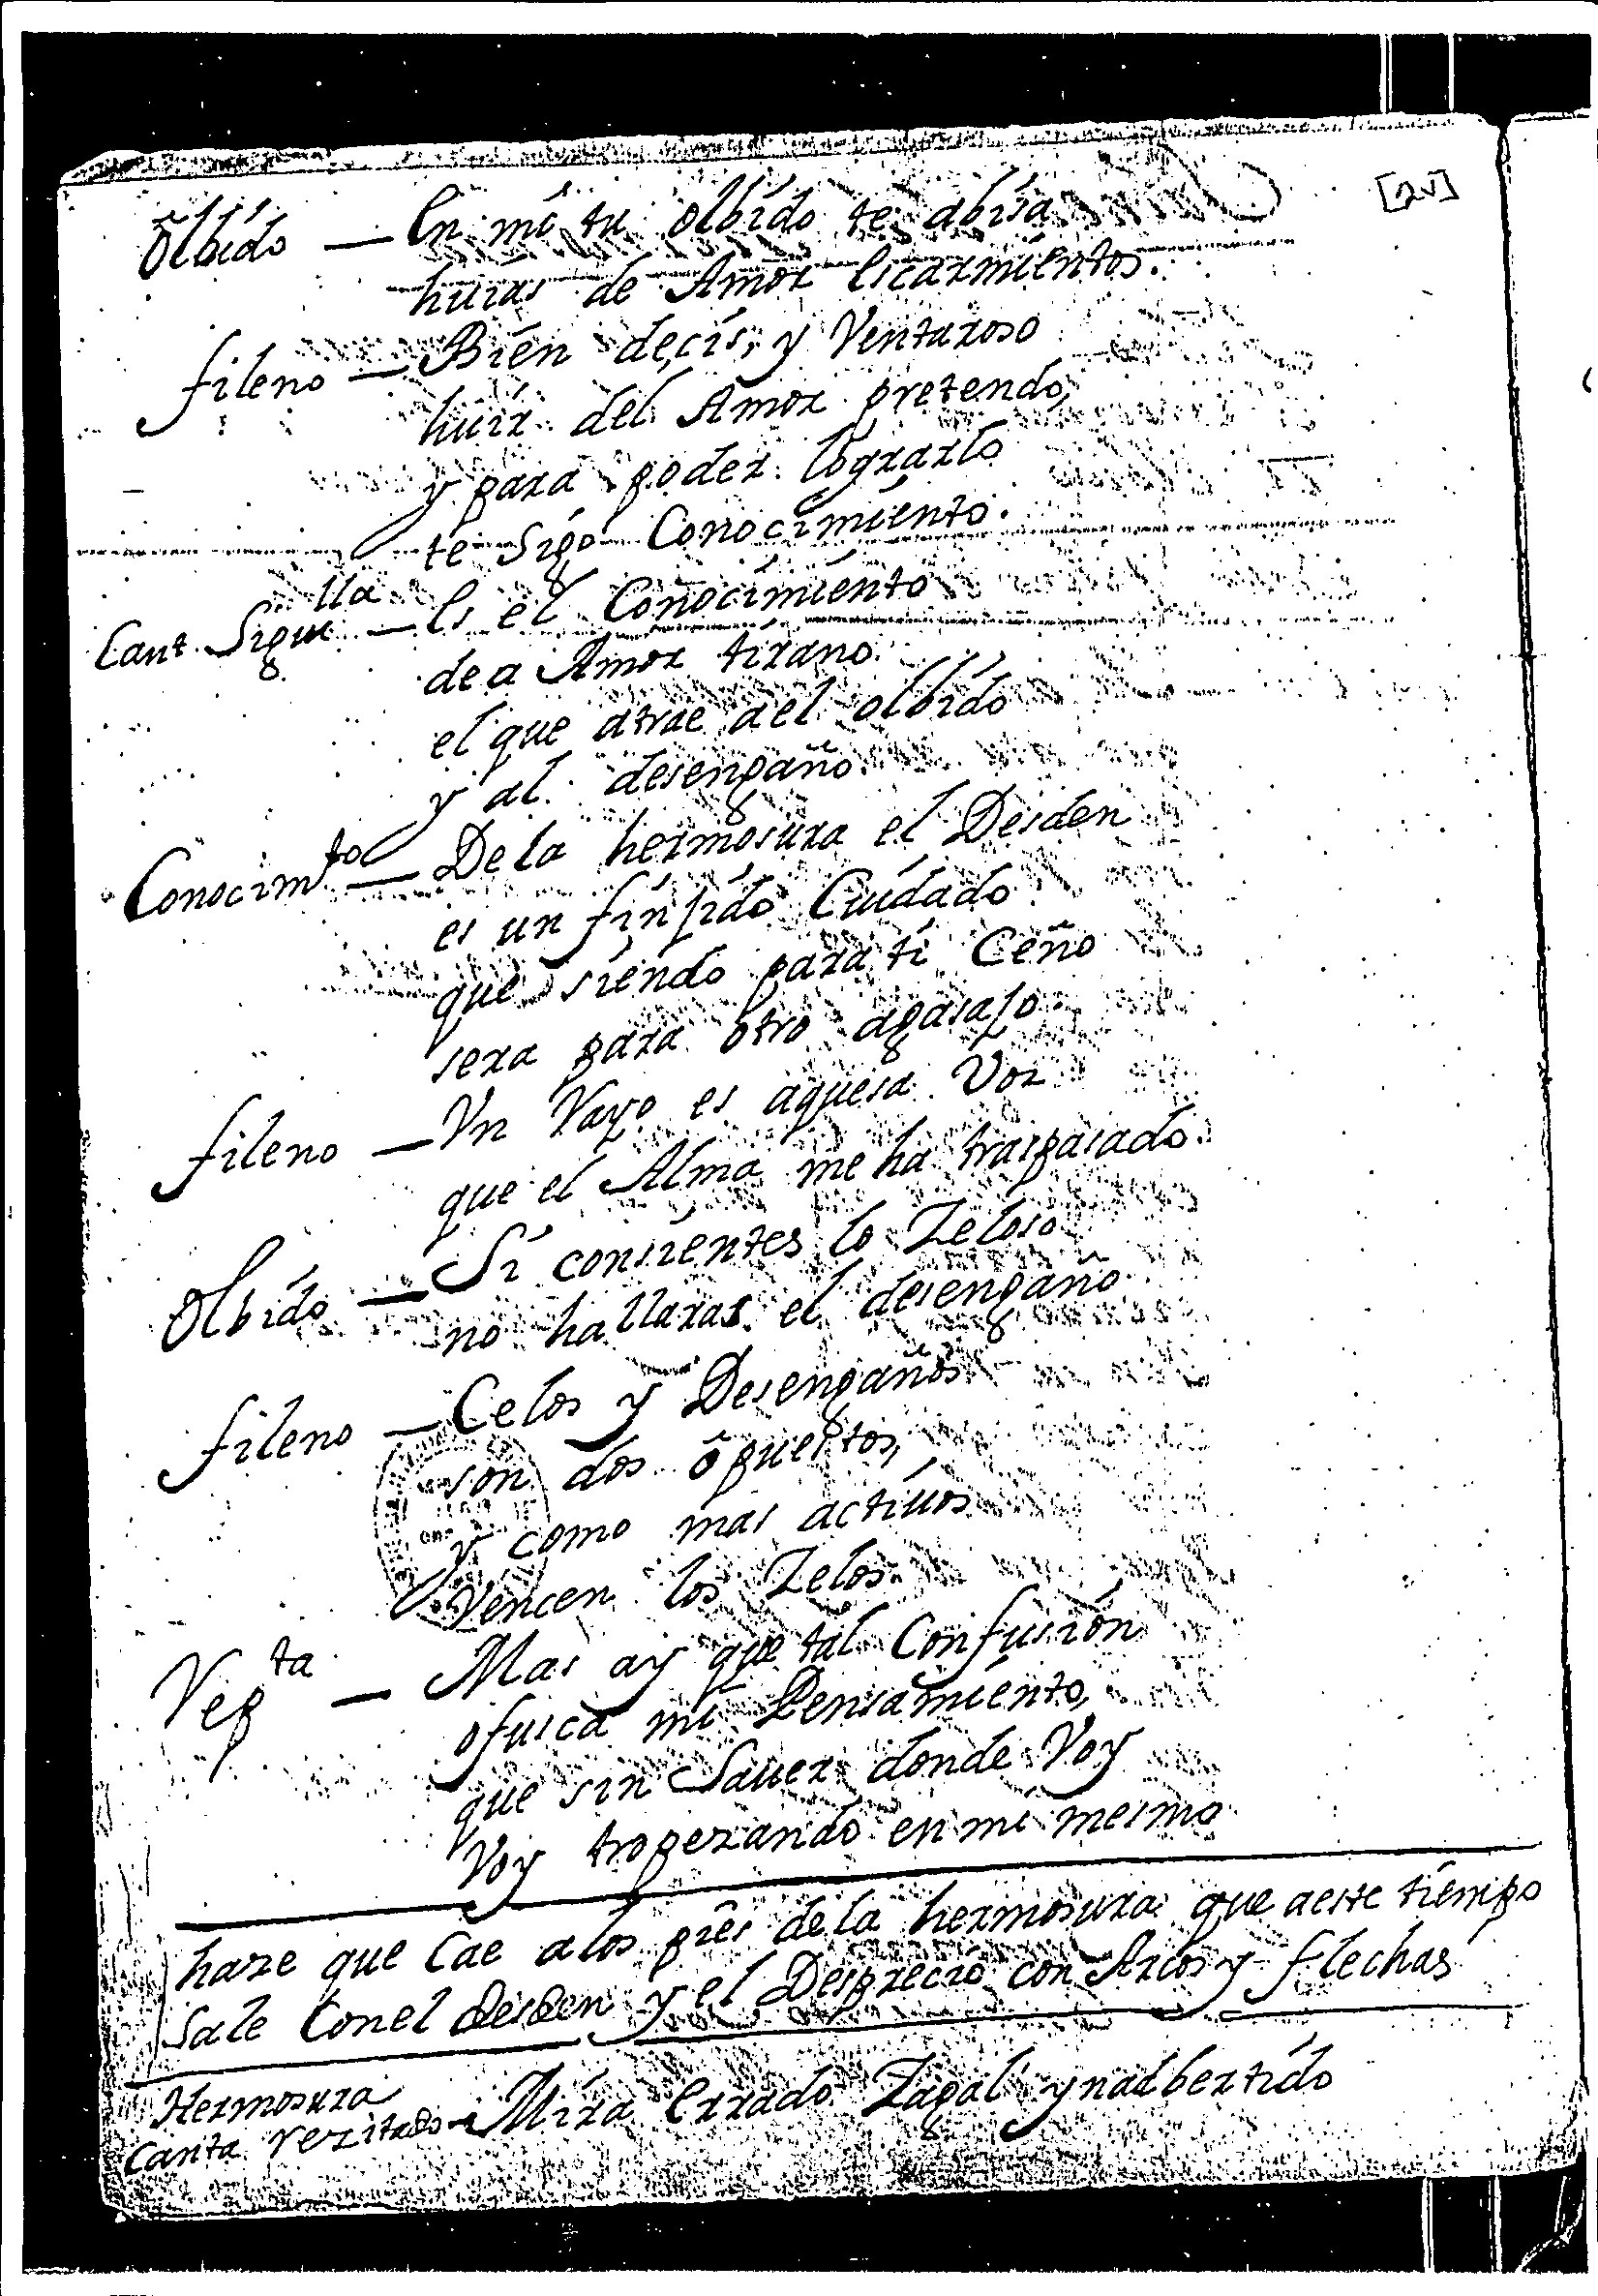 [2v]
Olbido — En mi tu olbido te abisa
huias de Amor Escarmientos.
fileno — Bien decis, y Venturoso
huir del Amor pretendo,
y para poder lograrlo
te Sigo Conocimiento.
Cant. Siguilla — Es el Conocimiento
de a Amor tirano
el que atrae del olbido
y al desengaño
Conocimto — De la hermosura el Desden
es un finjido Cuidado
que siendo para ti Ceño
sera para otro agasajo.
fileno — Vn Rayo es aquesa Voz
que el Alma me ha traspasado.
Olbido — Si consientes lo Zeloso
no hallaras el desengaño
fileno — Celos y Desengaños
son dos ôpuestos,
y como mas actiuos
Vencen los Zelos.
Repta — Mas ay que tal Confusion
ofusca mi Pensamiento,
que sin Sauer donde Voy
Voy tropezando en mi mesmo
haze que Cae a los pies de la hermosura que a este tiempo
Sale Con el Desden y el Desprecio con Arcos y flechas
Hermosura
canta rezitado — Mira Errado Zagal ynadbertido